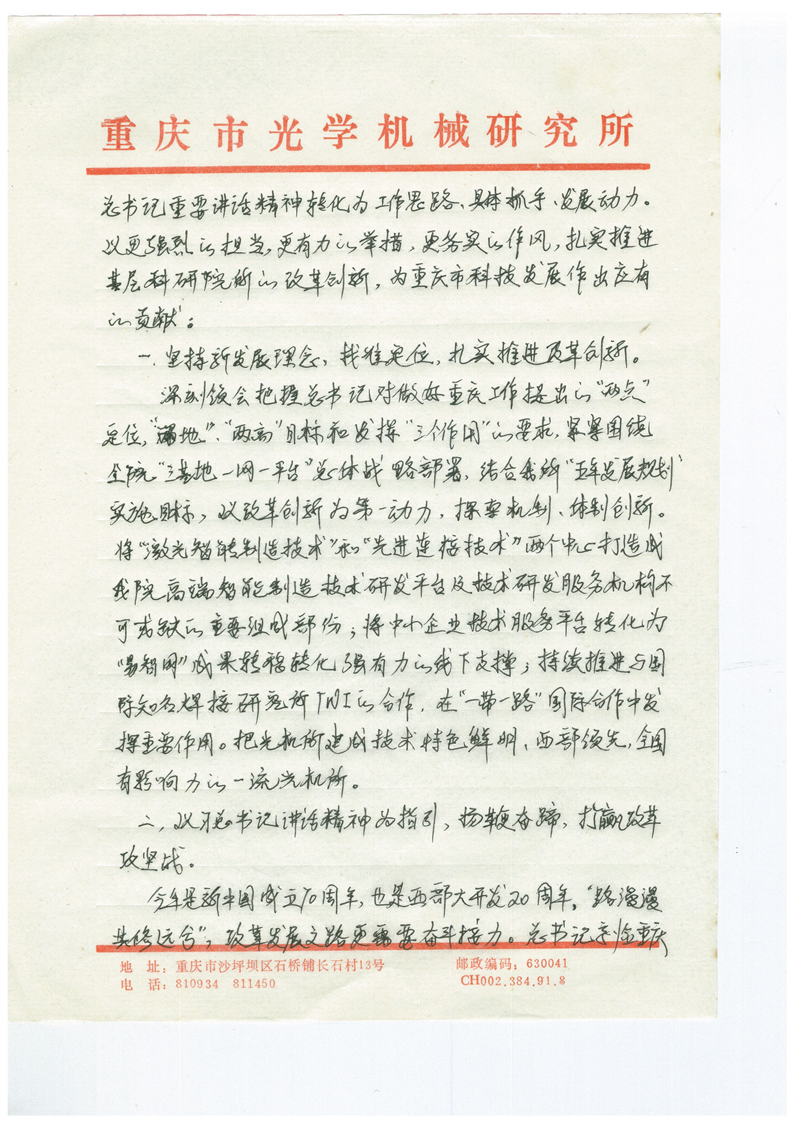 重庆市光学机械研究所
总书记重要讲话精神转化为工作思路、具体抓手、发展动力。
以更强烈的担当,更有力的举措,更务实的作风,扎实推进
基层科研院所的改革创新,为重庆市科技发展作出应有
的贡献:
一.坚持新发展理念,找准定位,扎实推进改革创新。
深刻领会把握总书记对做好重庆工作提出的“两点”
定位,“两地”、“两高”目标和发挥“三个作用”的要求,紧紧围绕
全院“三基地一网一平台”总体战略部署,结合我所“五年发展规划”
实施目标,以改革创新为第一动力,探索机制、体制创新。
将“激光智能制造技术”和“先进连接技术”两个中心打造成
我院高端智能制造技术研发平台及技术研发服务机构不
可或缺的重要组成部份;将中小企业技术服务平台转化为
“易智网”成果转移转化强有力的线下支撑;持续推进与国
际知名焊接研究所TWI的合作,在“一带一路”国际合作中发
挥重要作用。把光机所建成技术特色鲜明、西部领先,全国
有影响力的一流光机所。
二、以习总书记讲话精神为指引,扬鞭奋蹄,打赢改革
攻坚战。
今年是新中国成立70周年,也是西部大开发20周年,“路漫漫
其修远兮”,改革发展之路更需要奋斗接力。总书记亲临重庆
地 址:重庆市沙坪坝区石桥铺长石村13号 邮政编码:630041
电 话:810934 811450 CH002.384.91.8